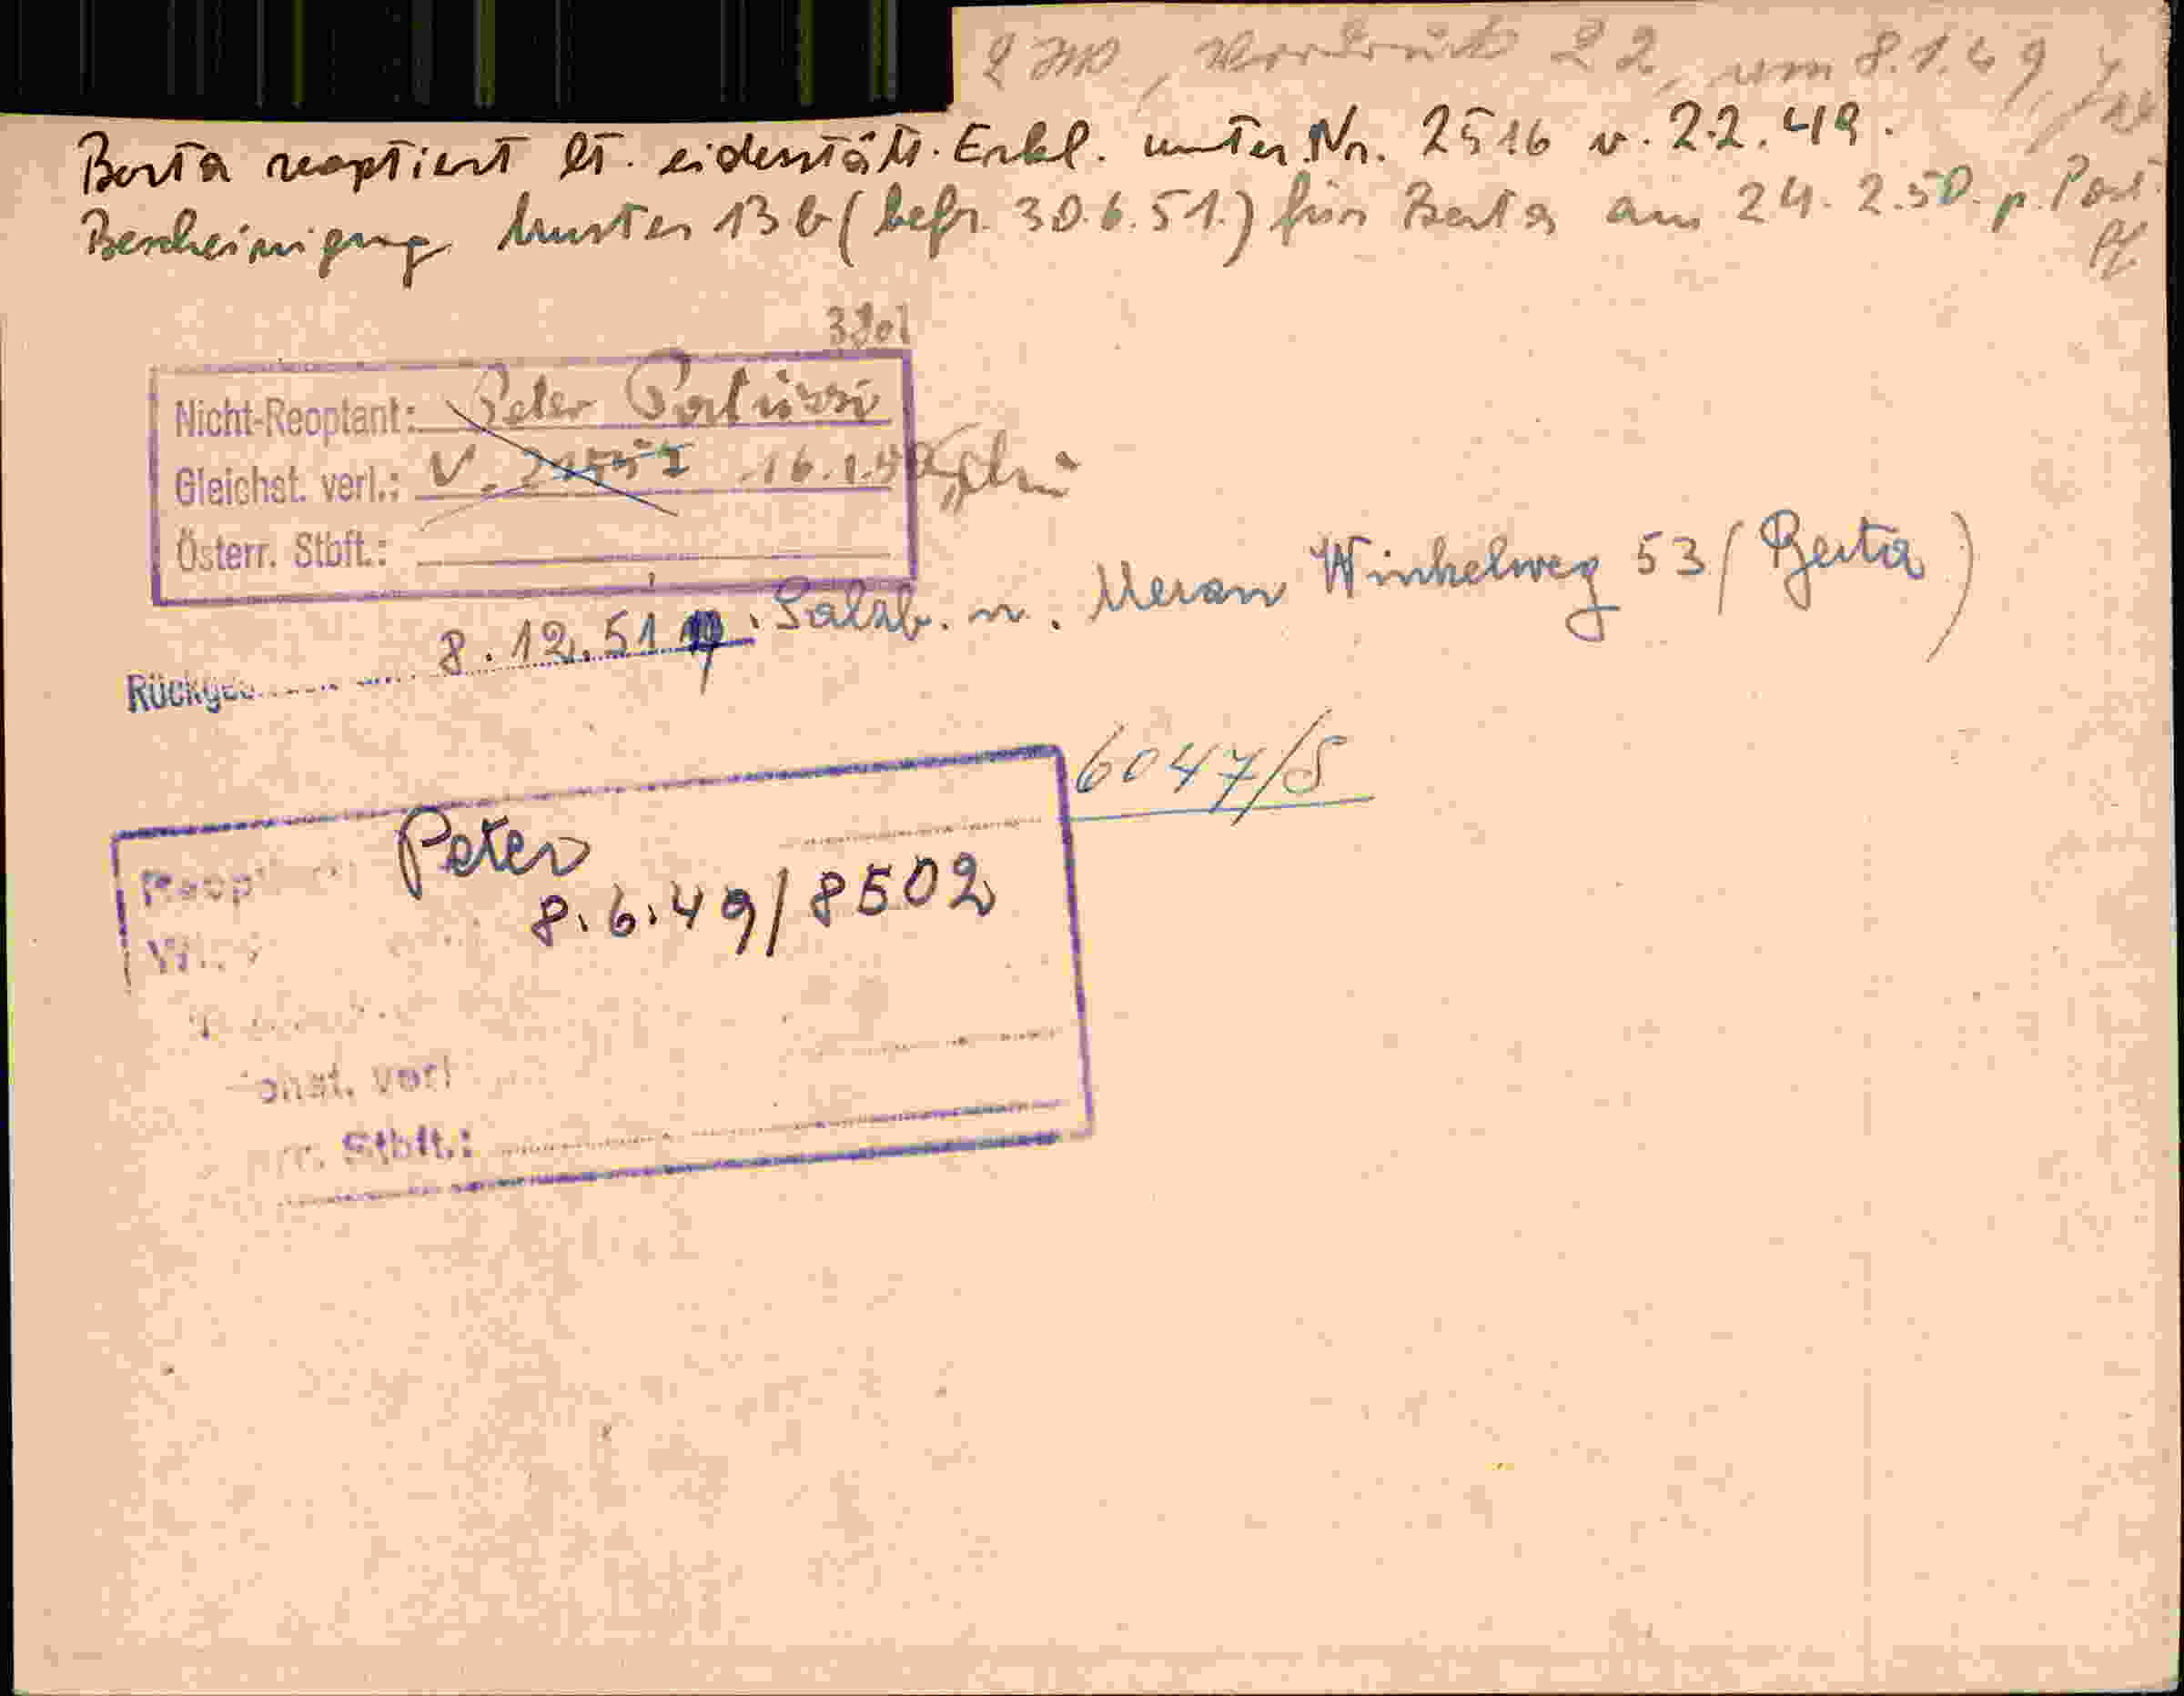 Vordruck 22, vom 8.1.49
Berta reoptiert lt. eidesstattl. Erkl. unter Nr. 2516 v. 2.2.49.
Bescheinigung Muster 13 b (befr. 30.6.51.) für Berta am 24.2.50. p. Post.
Nicht-Reoptant: Peter
Gleichst. verl.: V. 16.1.
Österr. Stbft.:
8.12.51 Salzb. n. Meran Winkelweg 53 (Berta)
6047/S
Peter
8.6.49/8502
verl
Stbft.: